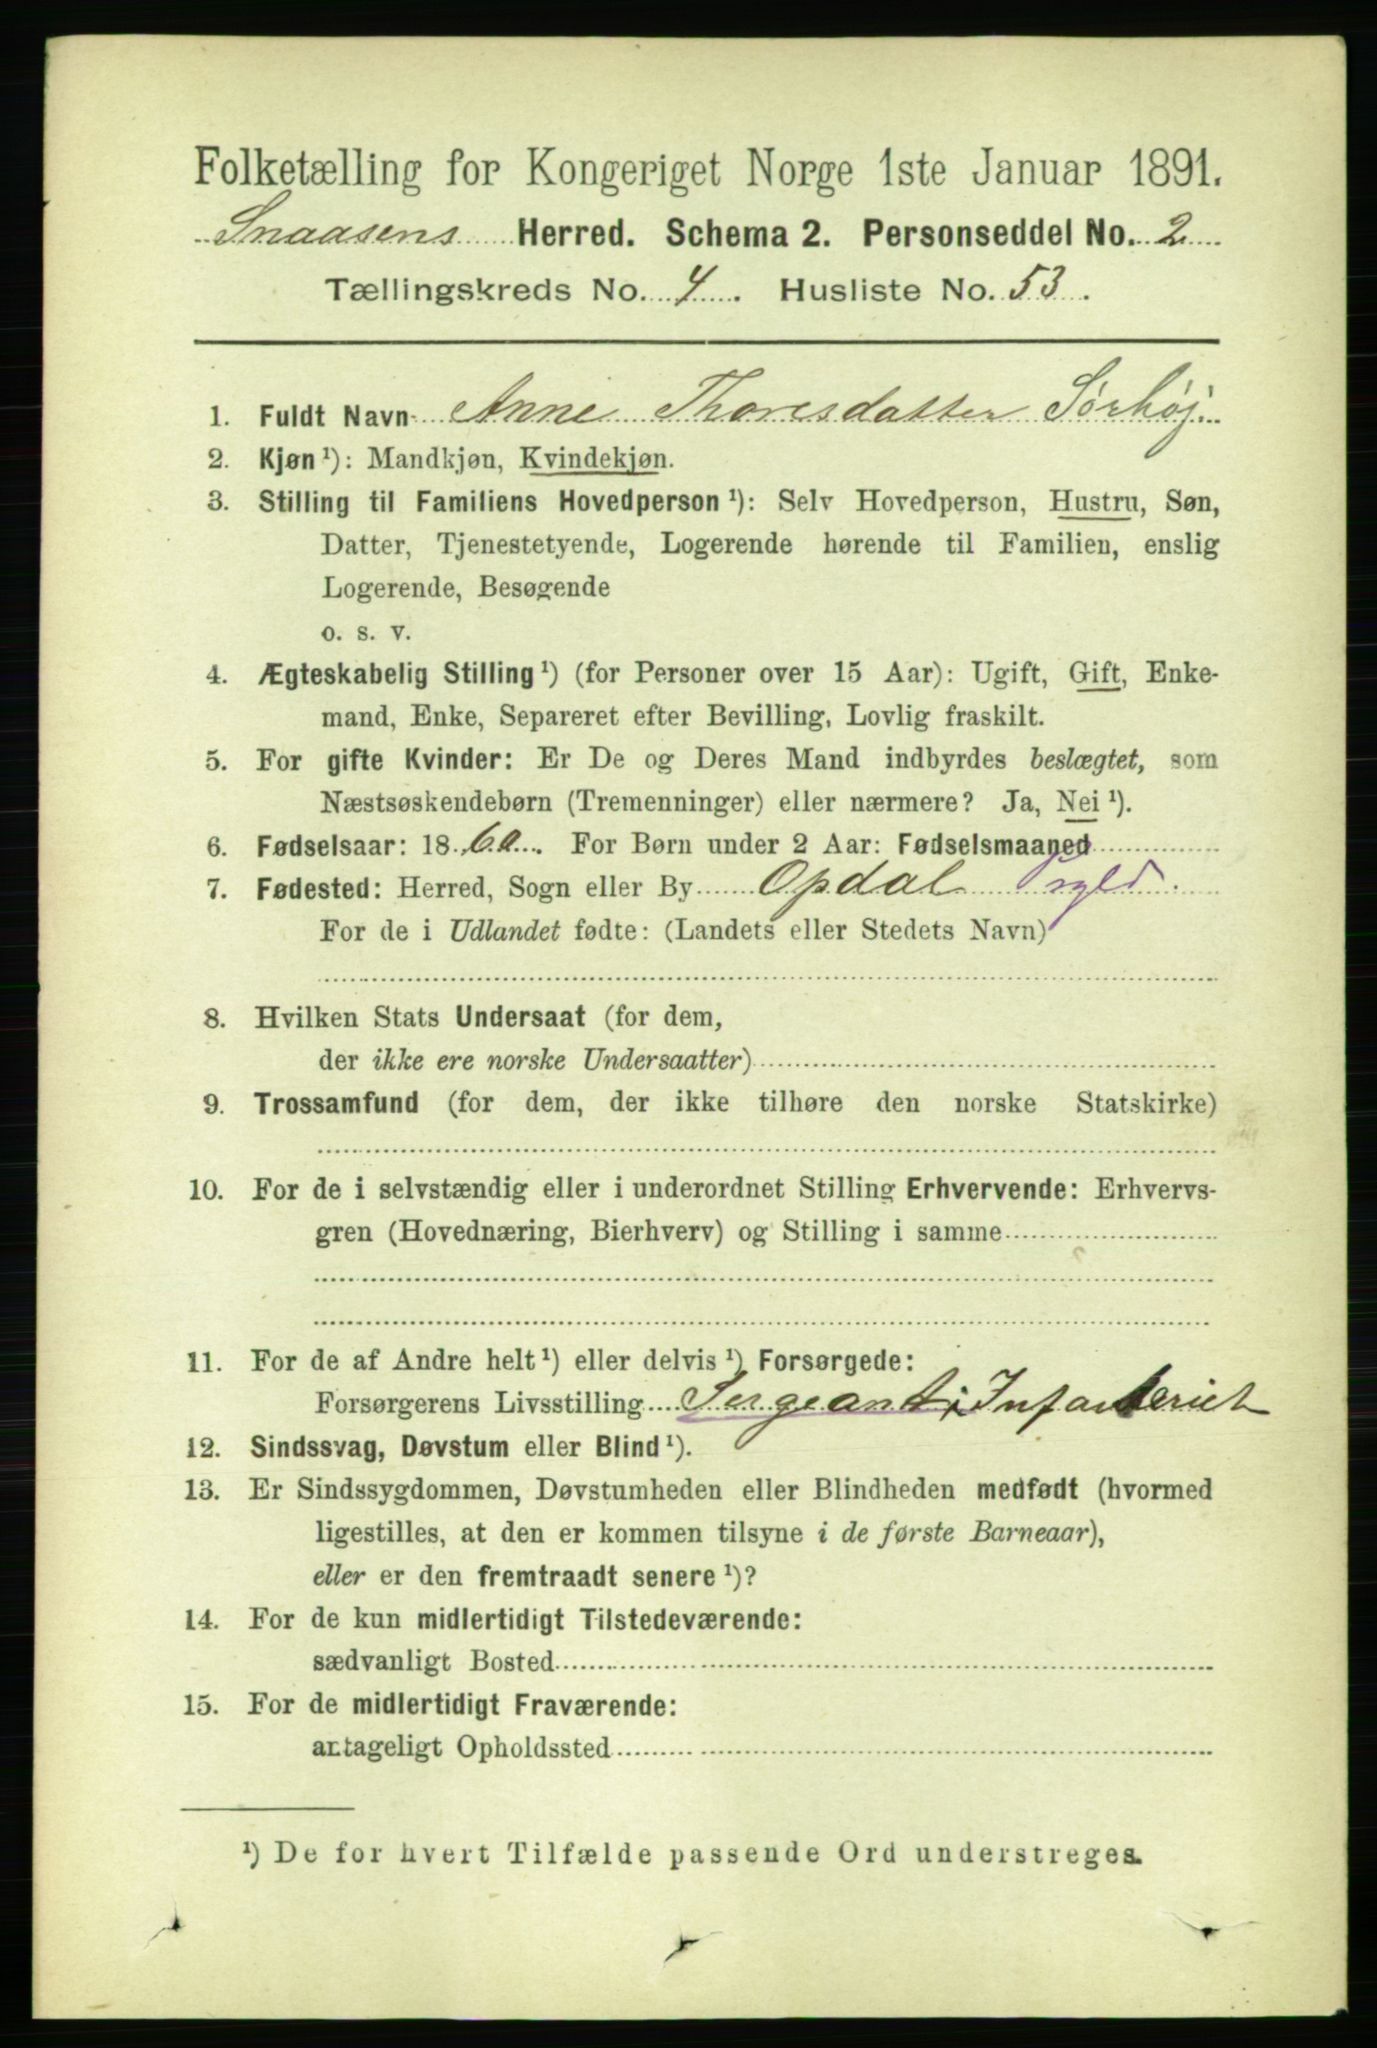 Folketælling for Kongeriget Norge 1ste Januar 1891.
Snaasens Herred. Schema 2. Personseddel No. 2
Tællingskreds No. 4. Husliste No. 53.
1. Fuldt Navn Anne Thoresdatter Sørhøj
2. Kjøn ¹): Mandkjøn, Kvindekjøn.
3. Stilling til Familiens Hovedperson ¹): Selv Hovedperson, Hustru, Søn,
Datter, Tjenestetyende, Logerende hørende til Familien, enslig
Logerende, Besøgende
o. s. v.
4. Ægteskabelig Stilling ¹) (for Personer over 15 Aar): Ugift, Gift, Enke-
mand, Enke, Separeret efter Bevilling, Lovlig fraskilt.
5. For gifte Kvinder: Er De og Deres Mand indbyrdes beslægtet, som
Næstsøskendebørn (Tremenninger) eller nærmere? Ja, Nei ¹).
6. Fødselsaar: 1860. For Børn under 2 Aar: Fødselsmaaned
7. Fødested: Herred, Sogn eller By Opdal
For de i Udlandet fødte: (Landets eller Stedets Navn)
8. Hvilken Stats Undersaat (for dem,
der ikke ere norske Undersaatter)
9. Trossamfund (for dem, der ikke tilhøre den norske Statskirke)
10. For de i selvstændig eller i underordnet Stilling Erhvervende: Erhvervs-
gren (Hovednæring, Bierhverv) og Stilling i samme
11. For de af Andre helt ¹) eller delvis ¹) Forsørgede:
Forsørgerens Livsstilling Sergeant i Infanteriet
12. Sindssvag, Døvstum eller Blind ¹).
13. Er Sindssygdommen, Døvstumheden eller Blindheden medfødt (hvormed
ligestilles, at den er kommen tilsyne i de første Barneaar),
eller er den fremtraadt senere ¹)?
14. For de kun midlertidigt Tilstedeværende:
sædvanligt Bosted
15. For de midlertidigt Fraværende:
antageligt Opholdssted
¹) De for hvert Tilfælde passende Ord understreges.